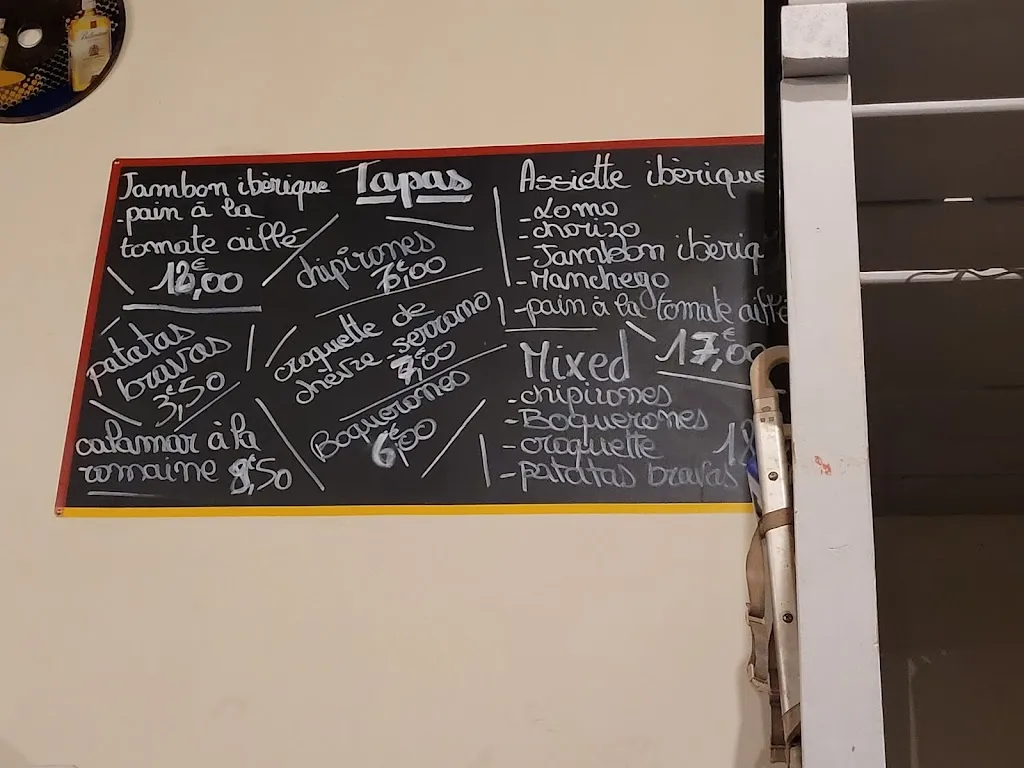 Tapas
Jambon ibèrique
-pain à la
tomate aillé
12,00€
chipirones
7,00€
patatas
bravas
3€,50
croquette de
chèvre-serrano
7,00€
Boquerones
6,00€
calamar à la
romaine 8€,50
Assiette ibèrique
-Lomo
-chorizo
-Jambon ibèriq
-Manchego
-pain à la tomate aillé
17,00€
Mixed
-chipirones
-Boquerones
-croquette
-patatas bravas
18
Ballantine's